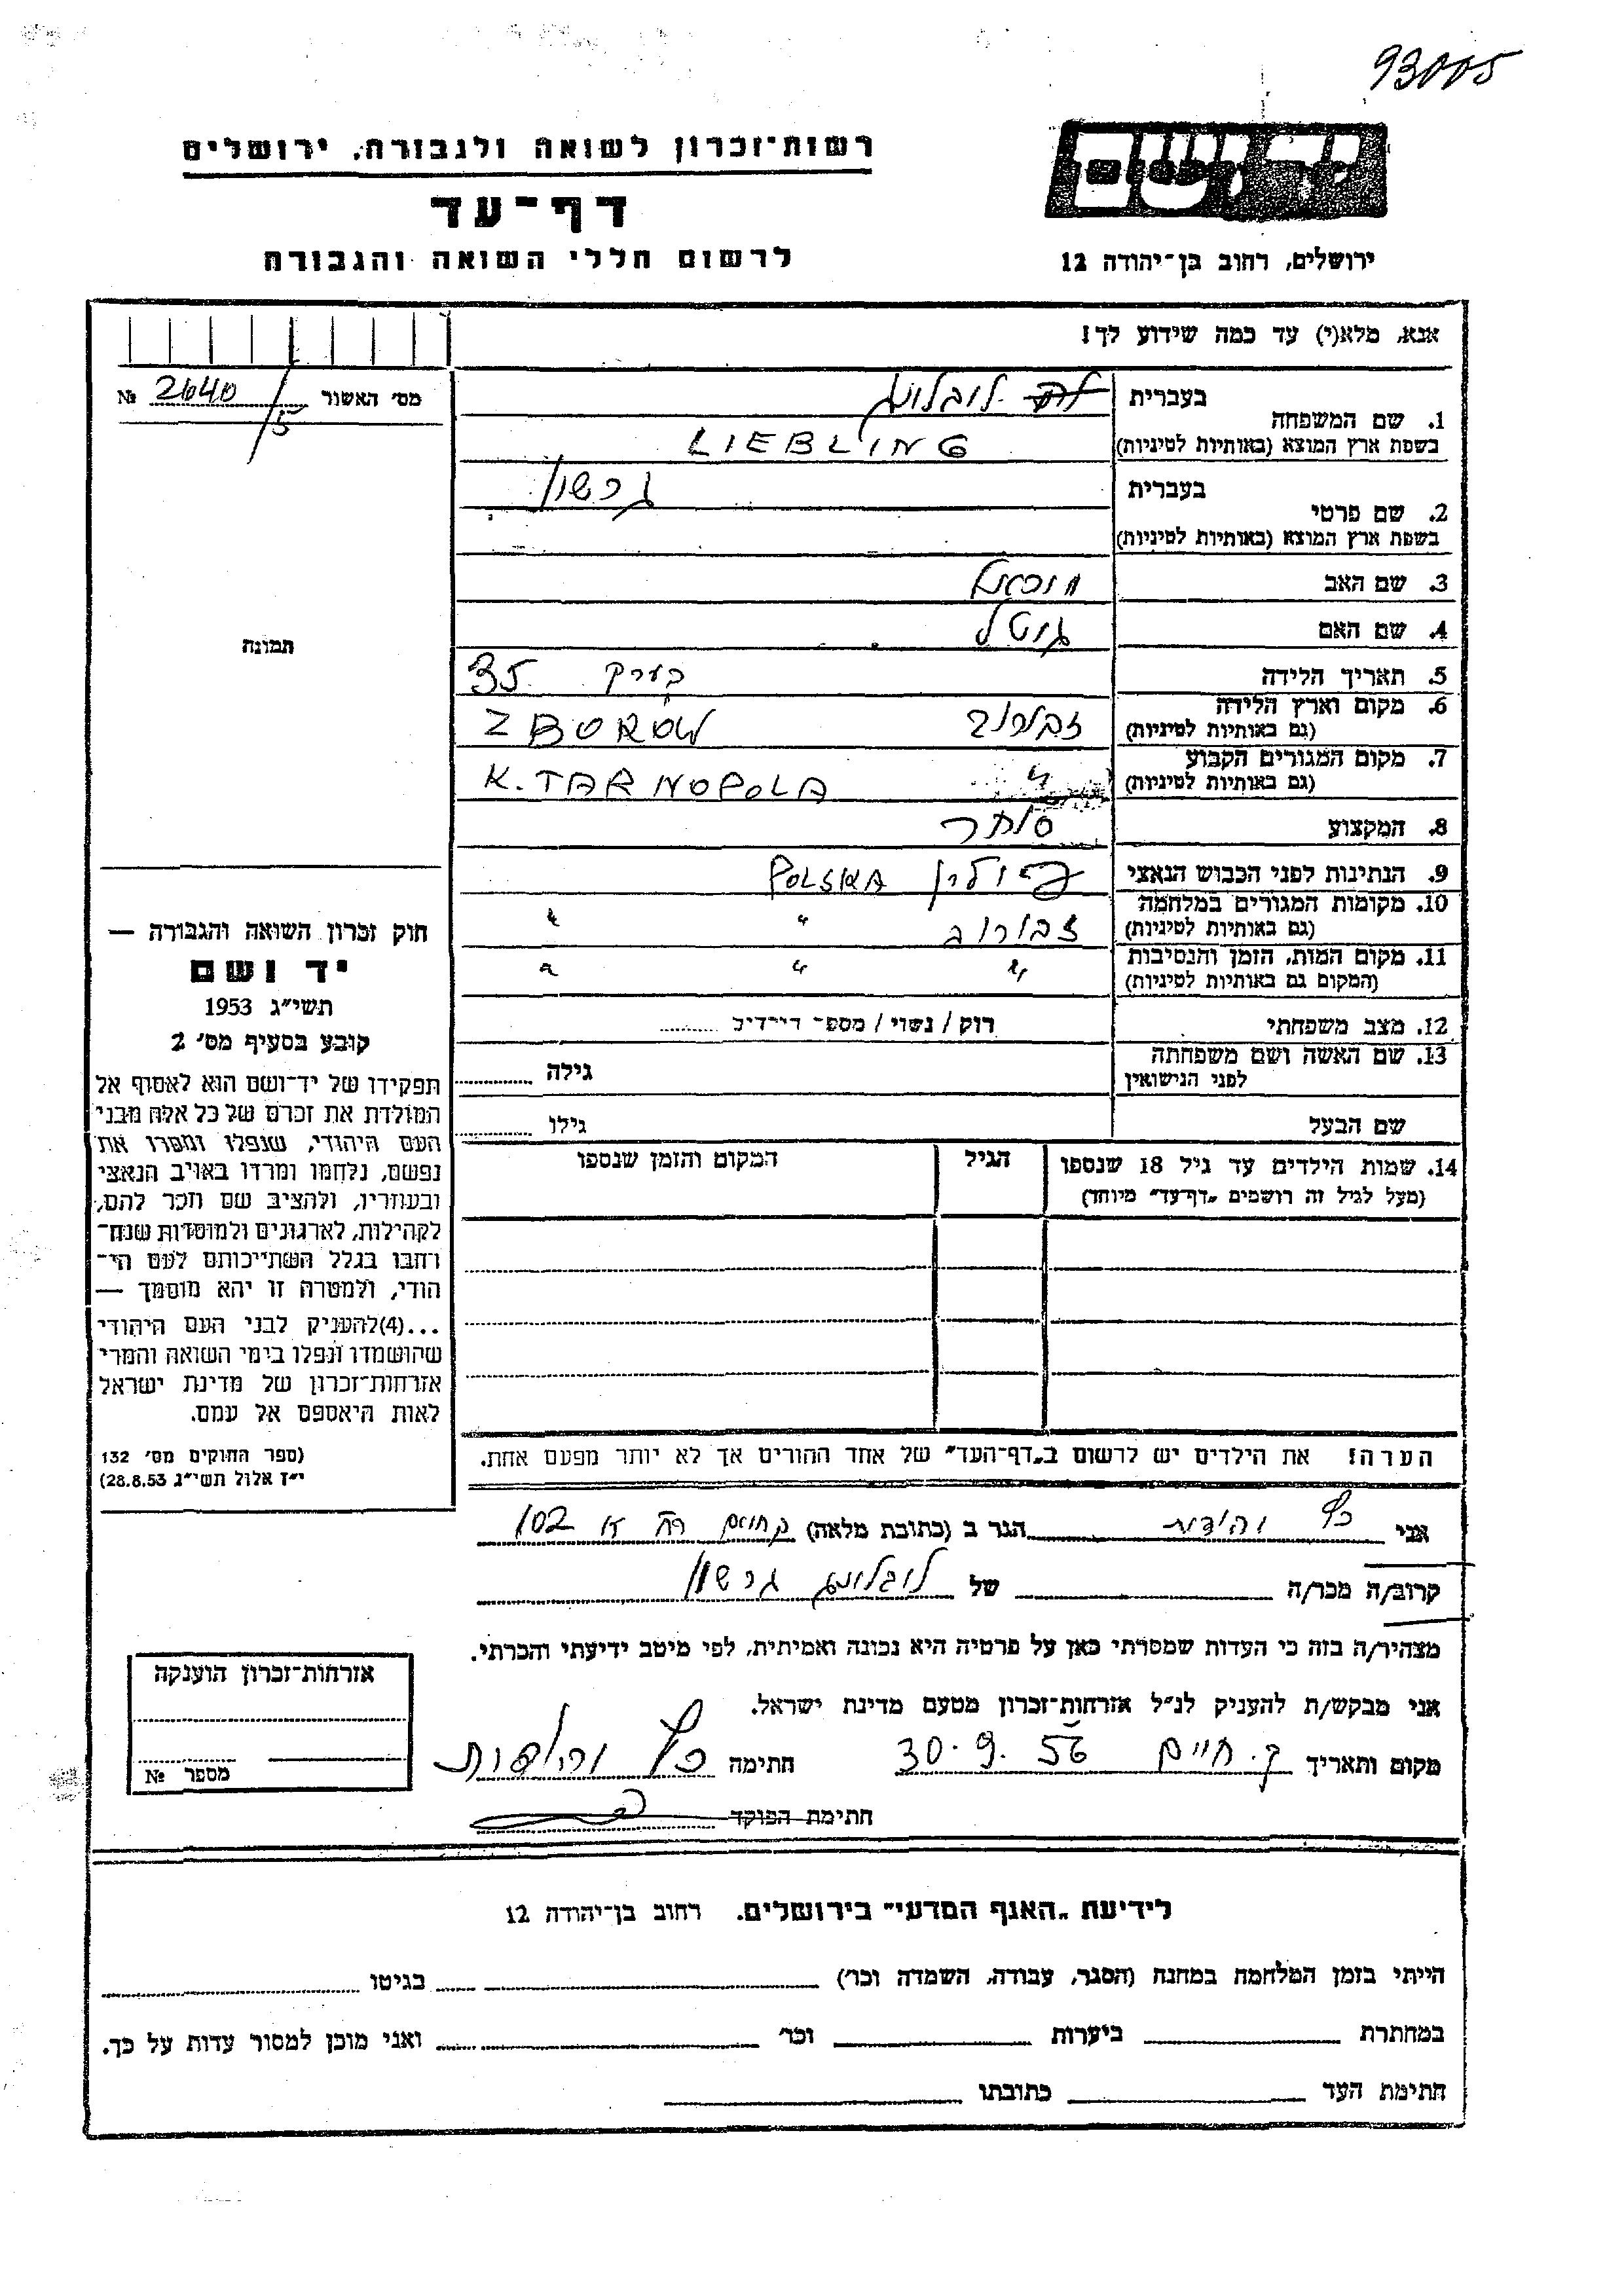 93005
רשות־זכרון לשואה ולגבורה, ירושלים
דף־עד
לרשום חללי השואה והגבורה
יד ושם
ירושלים, רחוב בן־יהודה 12
אנא, מלא(י) עד כמה שידוע לך!
מס׳ האשור 2640/5 №
תמונה
1. שם המשפחה
בעברית ליבלינג
בשפת ארץ המוצא (באותיות לטיניות) LIEBLING
2. שם פרטי
בעברית גרשון
בשפת ארץ המוצא (באותיות לטיניות)
3. שם האב
4. שם האם גיטל
5. תאריך הלידה בערך 35
6. מקום וארץ הלידה זבורוב ZBORÓW
(גם באותיות לטיניות)
7. מקום המגורים הקבוע " K. TARNOPOLA
(גם באותיות לטיניות)
8. המקצוע סוחר
9. הנתינות לפני הכבוש הנאצי פולין POLSKA
10. מקומות המגורים במלחמה זבורוב " "
(גם באותיות לטיניות)
11. מקום המות, הזמן והנסיבות " " "
(המקום גם באותיות לטיניות)
12. מצב משפחתי רוק / נשוי / מספר הילדים
13. שם האשה ושם משפחתה
לפני הנישואין גילה
שם הבעל גילו
14. שמות הילדים עד גיל 18 שנספו הגיל המקום והזמן שנספו
(מעל לגיל זה רושמים „דף־עד״ מיוחד)
הערה! את הילדים יש לרשום ב„דף־העד״ של אחד ההורים אך לא יותר מפעם אחת.
חוק זכרון השואה והגבורה —
יד ושם
תשי״ג 1953
קובע בסעיף מס׳ 2
תפקידו של יד־ושם הוא לאסוף אל
המולדת את זכרם של כל אלה מבני
העם היהודי, שנפלו ומסרו את
נפשם, נלחמו ומרדו באויב הנאצי
ובעוזריו, ולהציב שם וזכר להם,
לקהילות, לארגונים ולמוסדות שנח־
רחבו בגלל השתייכותם לעם הי־
הודי, ולמטרה זו יהא מוסמך —
...(4)להעניק לבני העם היהודי
שהושמדו ונפלו בימי השואה והמרי
אזרחות־זכרון של מדינת ישראל
לאות היאספם אל עמם.
(ספר החוקים מס׳ 132
י״ז אלול תשי״ג 28.8.53)
אני כץ יהודית הגר ב (כתובת מלאה) 102
קרוב/ה מכר/ה של ליבלינג גרשון
מצהיר/ה בזה כי העדות שמסרתי כאן על פרטיה היא נכונה ואמיתית, לפי מיטב ידיעתי והכרתי.
אני מבקש/ת להעניק לנ״ל אזרחות־זכרון מטעם מדינת ישראל.
מקום ותאריך ק. חיים 30.9.56 חתימה כץ יהודית
חתימת הפוקד
אזרחות־זכרון הוענקה
מספר №
לידיעת „האגף המדעי״ בירושלים. רחוב בן־יהודה 12
הייתי בזמן המלחמה במחנה (הסגר, עבודה, השמדה וכו׳) בגיטו
במחתרת ביערות וכו׳ ואני מוכן למסור עדות על כך.
חתימת העד כתובתו